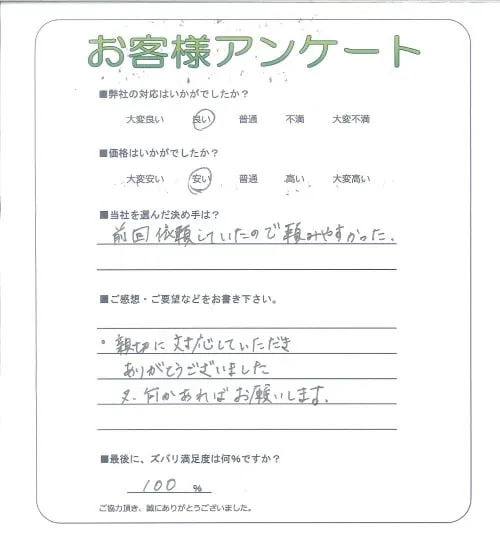 お客様アンケート
■弊社の対応はいかがでしたか？
大変良い 良い 普通 不満 大変不満
■価格はいかがでしたか？
大変安い 安い 普通 高い 大変高い
■当社を選んだ決め手は？
前回依頼していたので頼みやすかった。
■ご感想・ご要望などをお書き下さい。
・親切に対応していただき
ありがとうございました
又、何かあればお願いします。
■最後に、ズバリ満足度は何％ですか？
100 %
ご協力頂き、誠にありがとうございました。